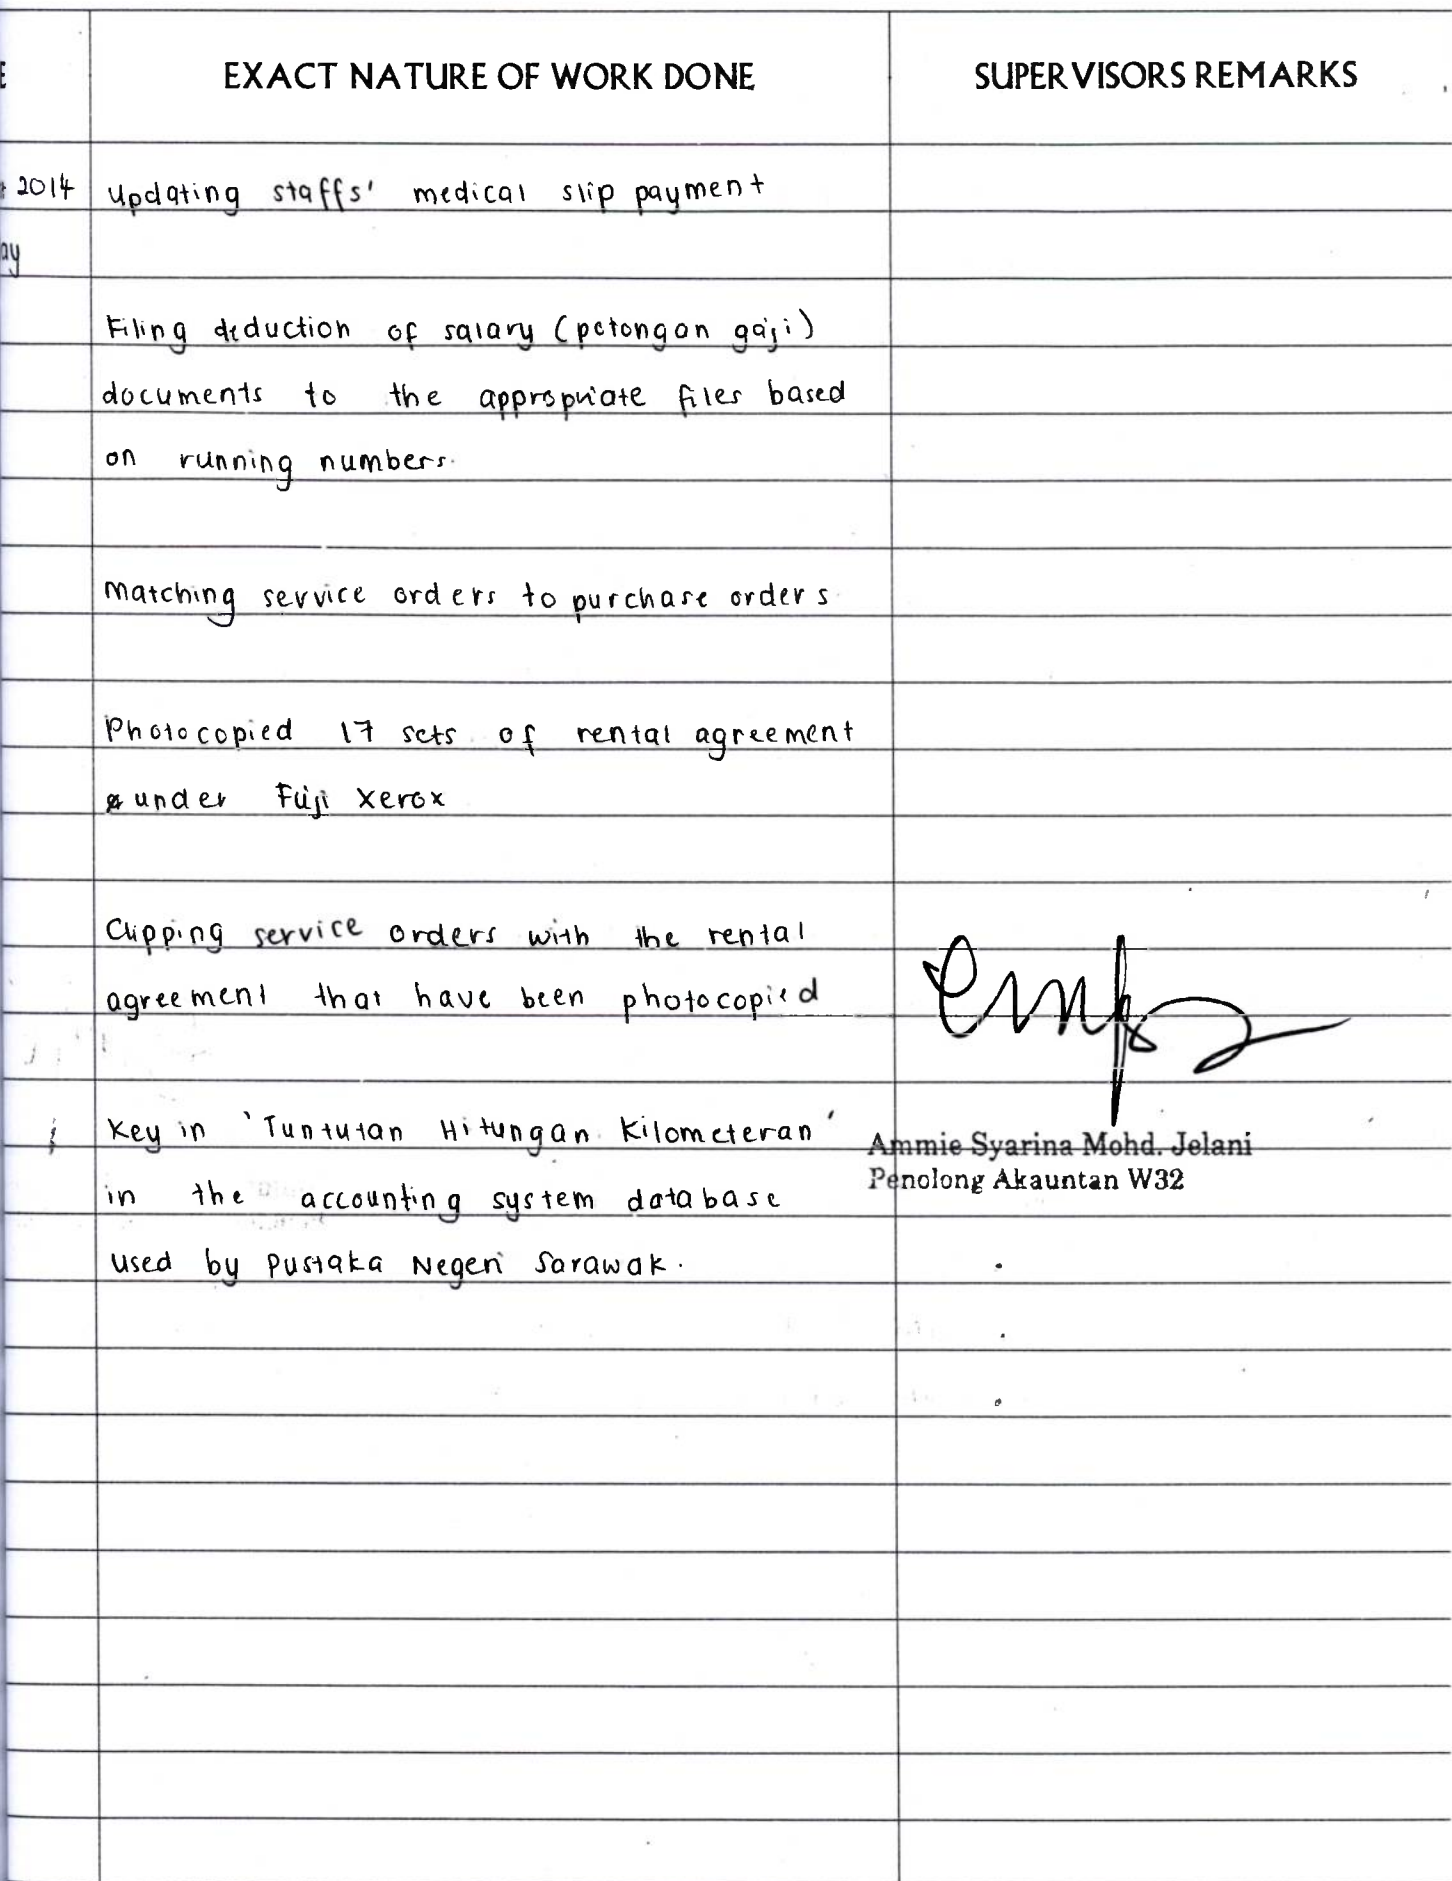 EXACT NATURE OF WORK DONE
SUPERVISORS REMARKS
2014
Updating staffs' medical slip payment
ay
Filing deduction of salary (potongan gaji)
documents to the appropriate files based
on running numbers.
Matching service orders to purchase orders
Photocopied 17 sets of rental agreement
under Fuji Xerox
Clipping service orders with the rental
agreement that have been photocopied
Key in 'Tuntutan Hitungan Kilometeran'
Ammie Syarina Mohd. Jelani
Penolong Akauntan W32
in the accounting system database
used by Pustaka Negeri Sarawak.